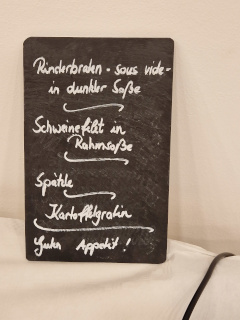 Rinderbraten - sous vide -
in dunkler Soße
Schweinefilet in
Rahmsoße
Spätzle
Kartoffelgratin
Guten Appetit!